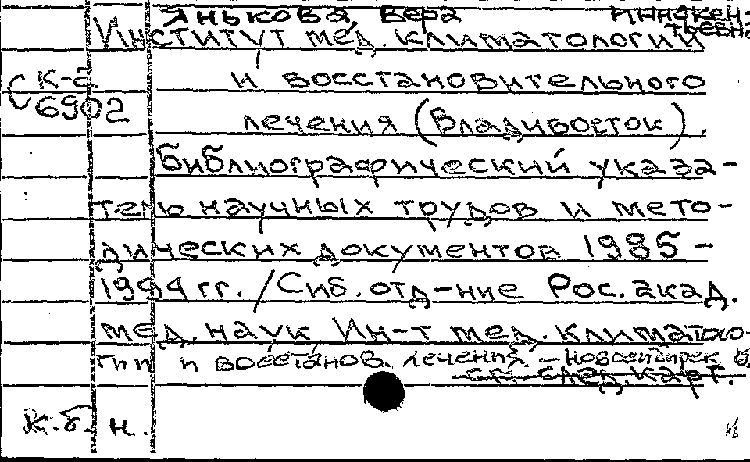 Янькова Вера Иннокен-
тьевна
Институт мед. климатологии
К-б
С 6902
и восстановительного
лечения (Владивосток).
Библиографический указа-
тель научных трудов и мето-
дических документов 1985-
1994 гг. / Сиб. отд-ние Рос. акад.
мед. наук Ин-т мед. климатоло-
гии и восстанов. лечения. - Новосибирск
см. след. карт.
к.б. н.